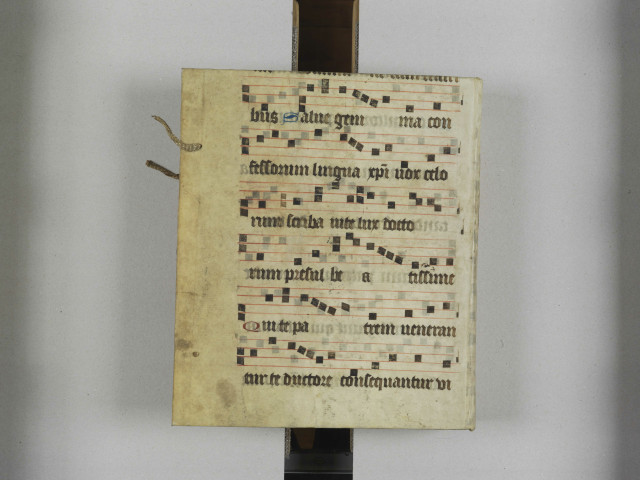 bus Salue gemma con
fessorum lingua xpi uox celo
rum scriba uite lux docto
rum presul be a tissime
Qui te pa trem ueneran
tur te ductore consequantur vi